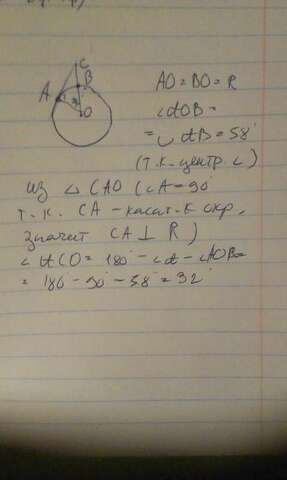 C
B
A
O
AO = BO = R
∠AOB =
= ◡ AB = 58°
(т.к. центр. ∠)
из △ CAO (∠A = 90°
т.к. CA – касат. к окр,
значит CA ⊥ R)
∠ ACO = 180° – ∠A – ∠AOB =
= 180 – 90° – 58° = 32°